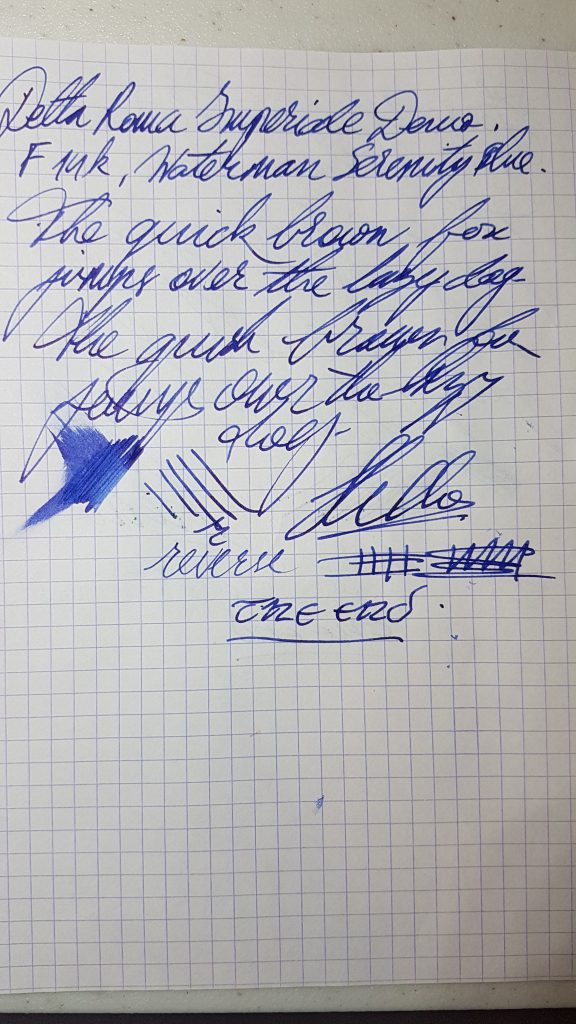 Delta Roma Imperiale Demo.
F 14k, Waterman Serenity Blue.
The quick brown fox
jumps over the lazy dog
The quick brown fox
jumps over the lazy
dog.
Hello
reverse
THE END.